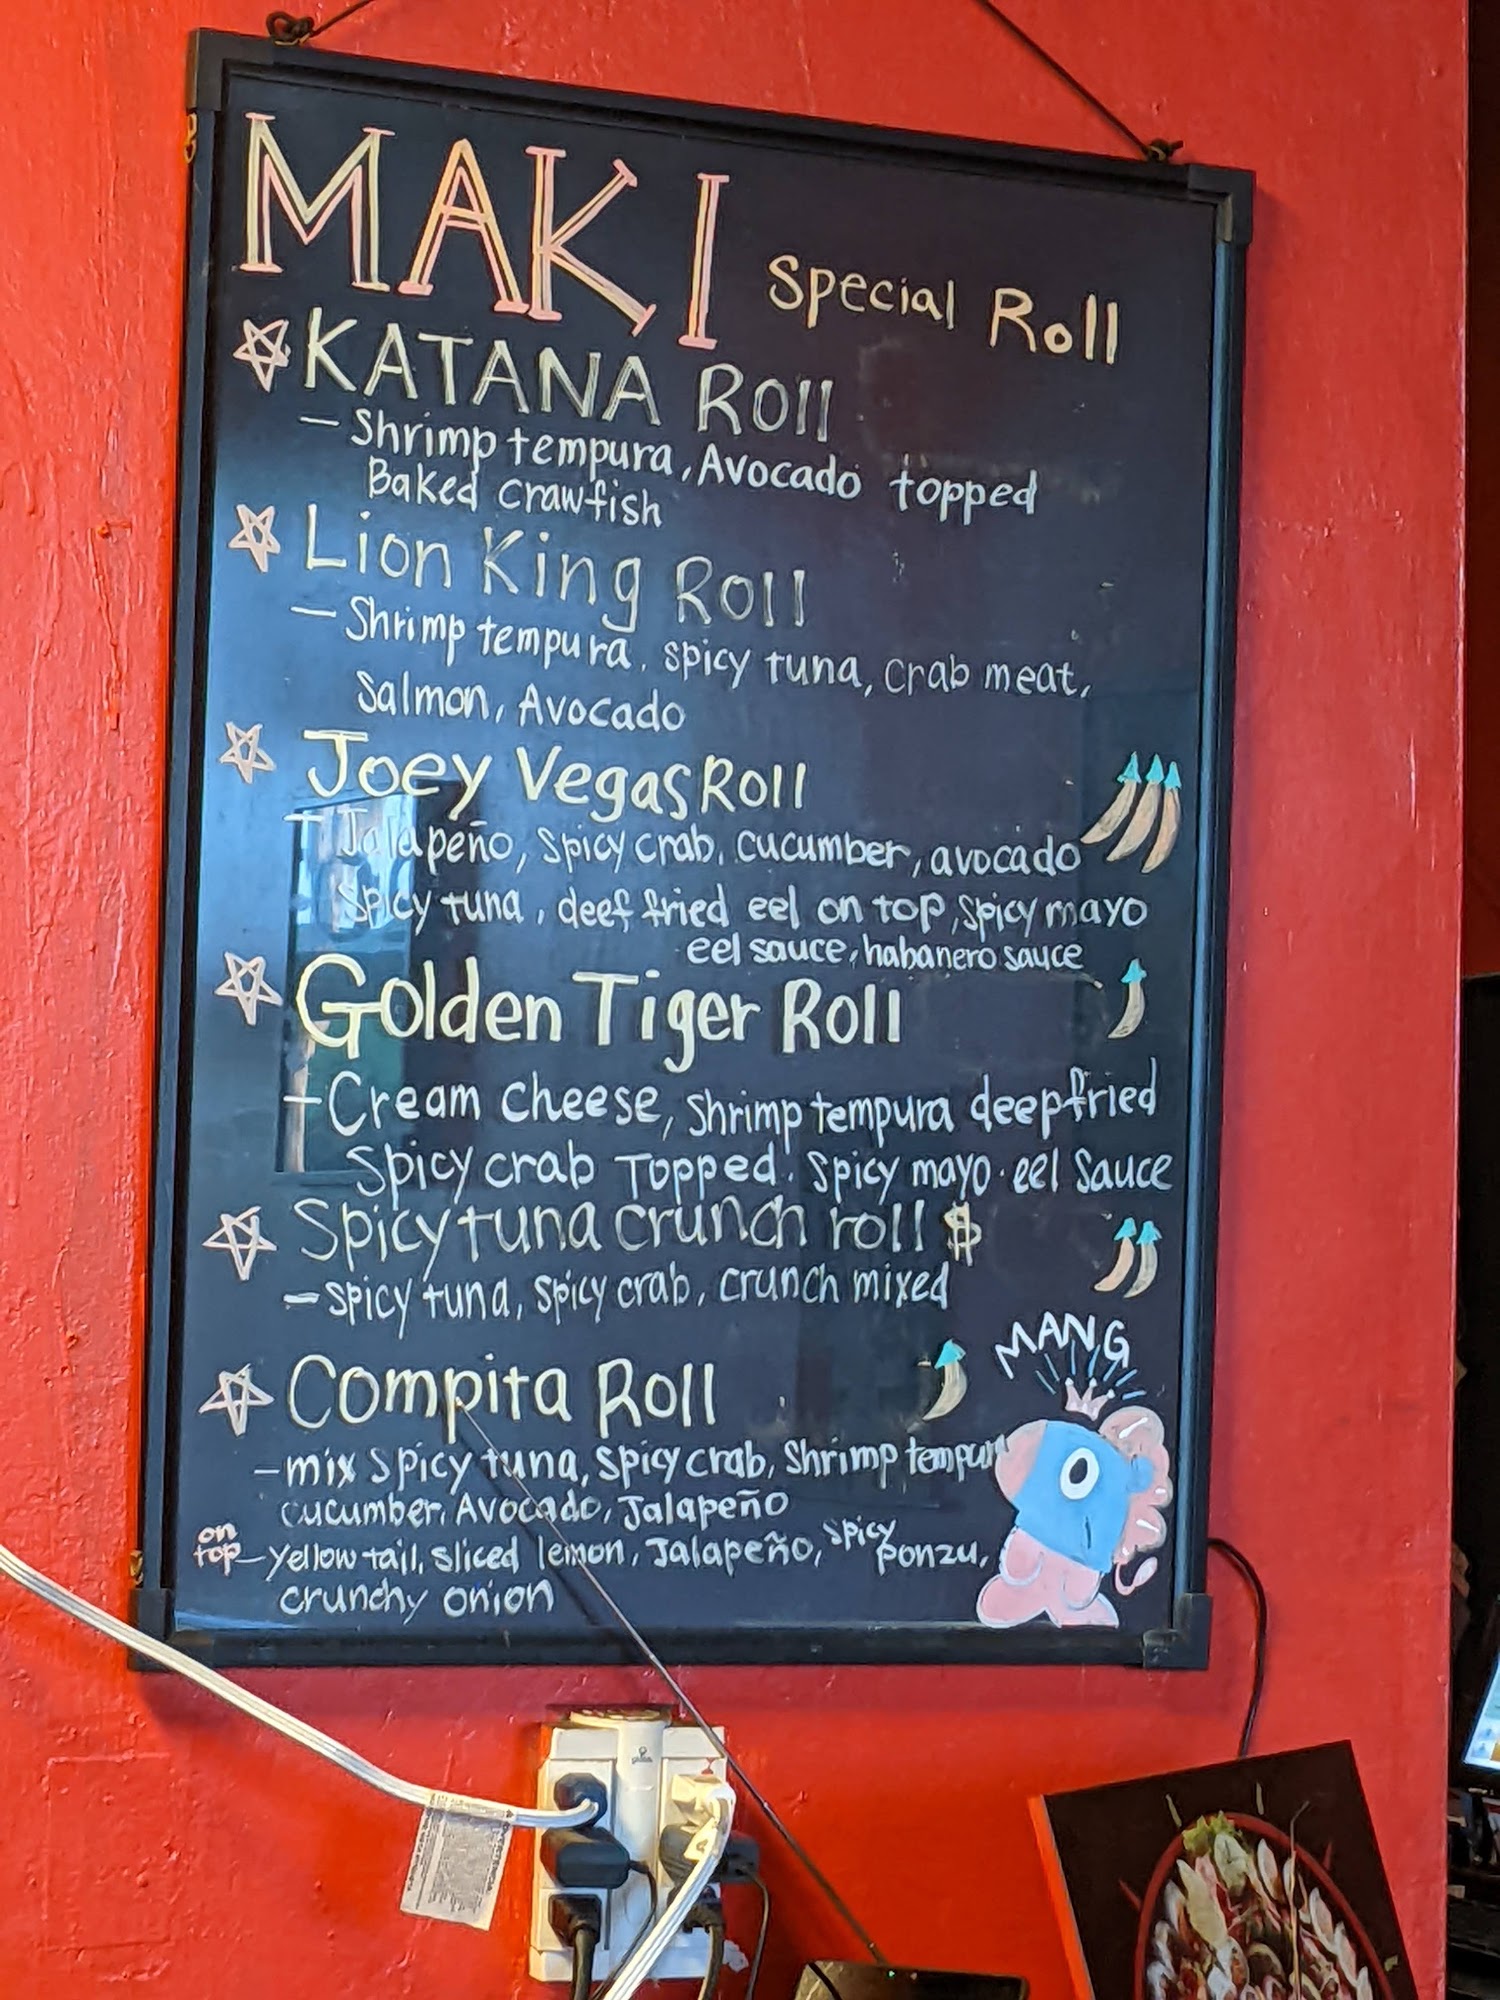 MAKI Special Roll
KATANA Roll
- Shrimp tempura, Avocado topped
Baked crawfish
Lion King Roll
- Shrimp tempura, spicy tuna, crab meat,
Salmon, Avocado
Joey Vegas Roll
- Jalapeño, spicy crab, cucumber, avocado
spicy tuna, deef fried eel on top, spicy mayo
eel sauce, habanero sauce
Golden Tiger Roll
- Cream cheese, shrimp tempura deep fried
Spicy crab Topped, spicy mayo. eel sauce
Spicy tuna crunch roll $
- spicy tuna, spicy crab, crunch mixed
MANG
Compita Roll
- mix spicy tuna, spicy crab, shrimp tempur
cucumber, Avocado, Jalapeño
on top - yellow tail, sliced lemon, Jalapeño, spicy ponzu,
crunchy onion